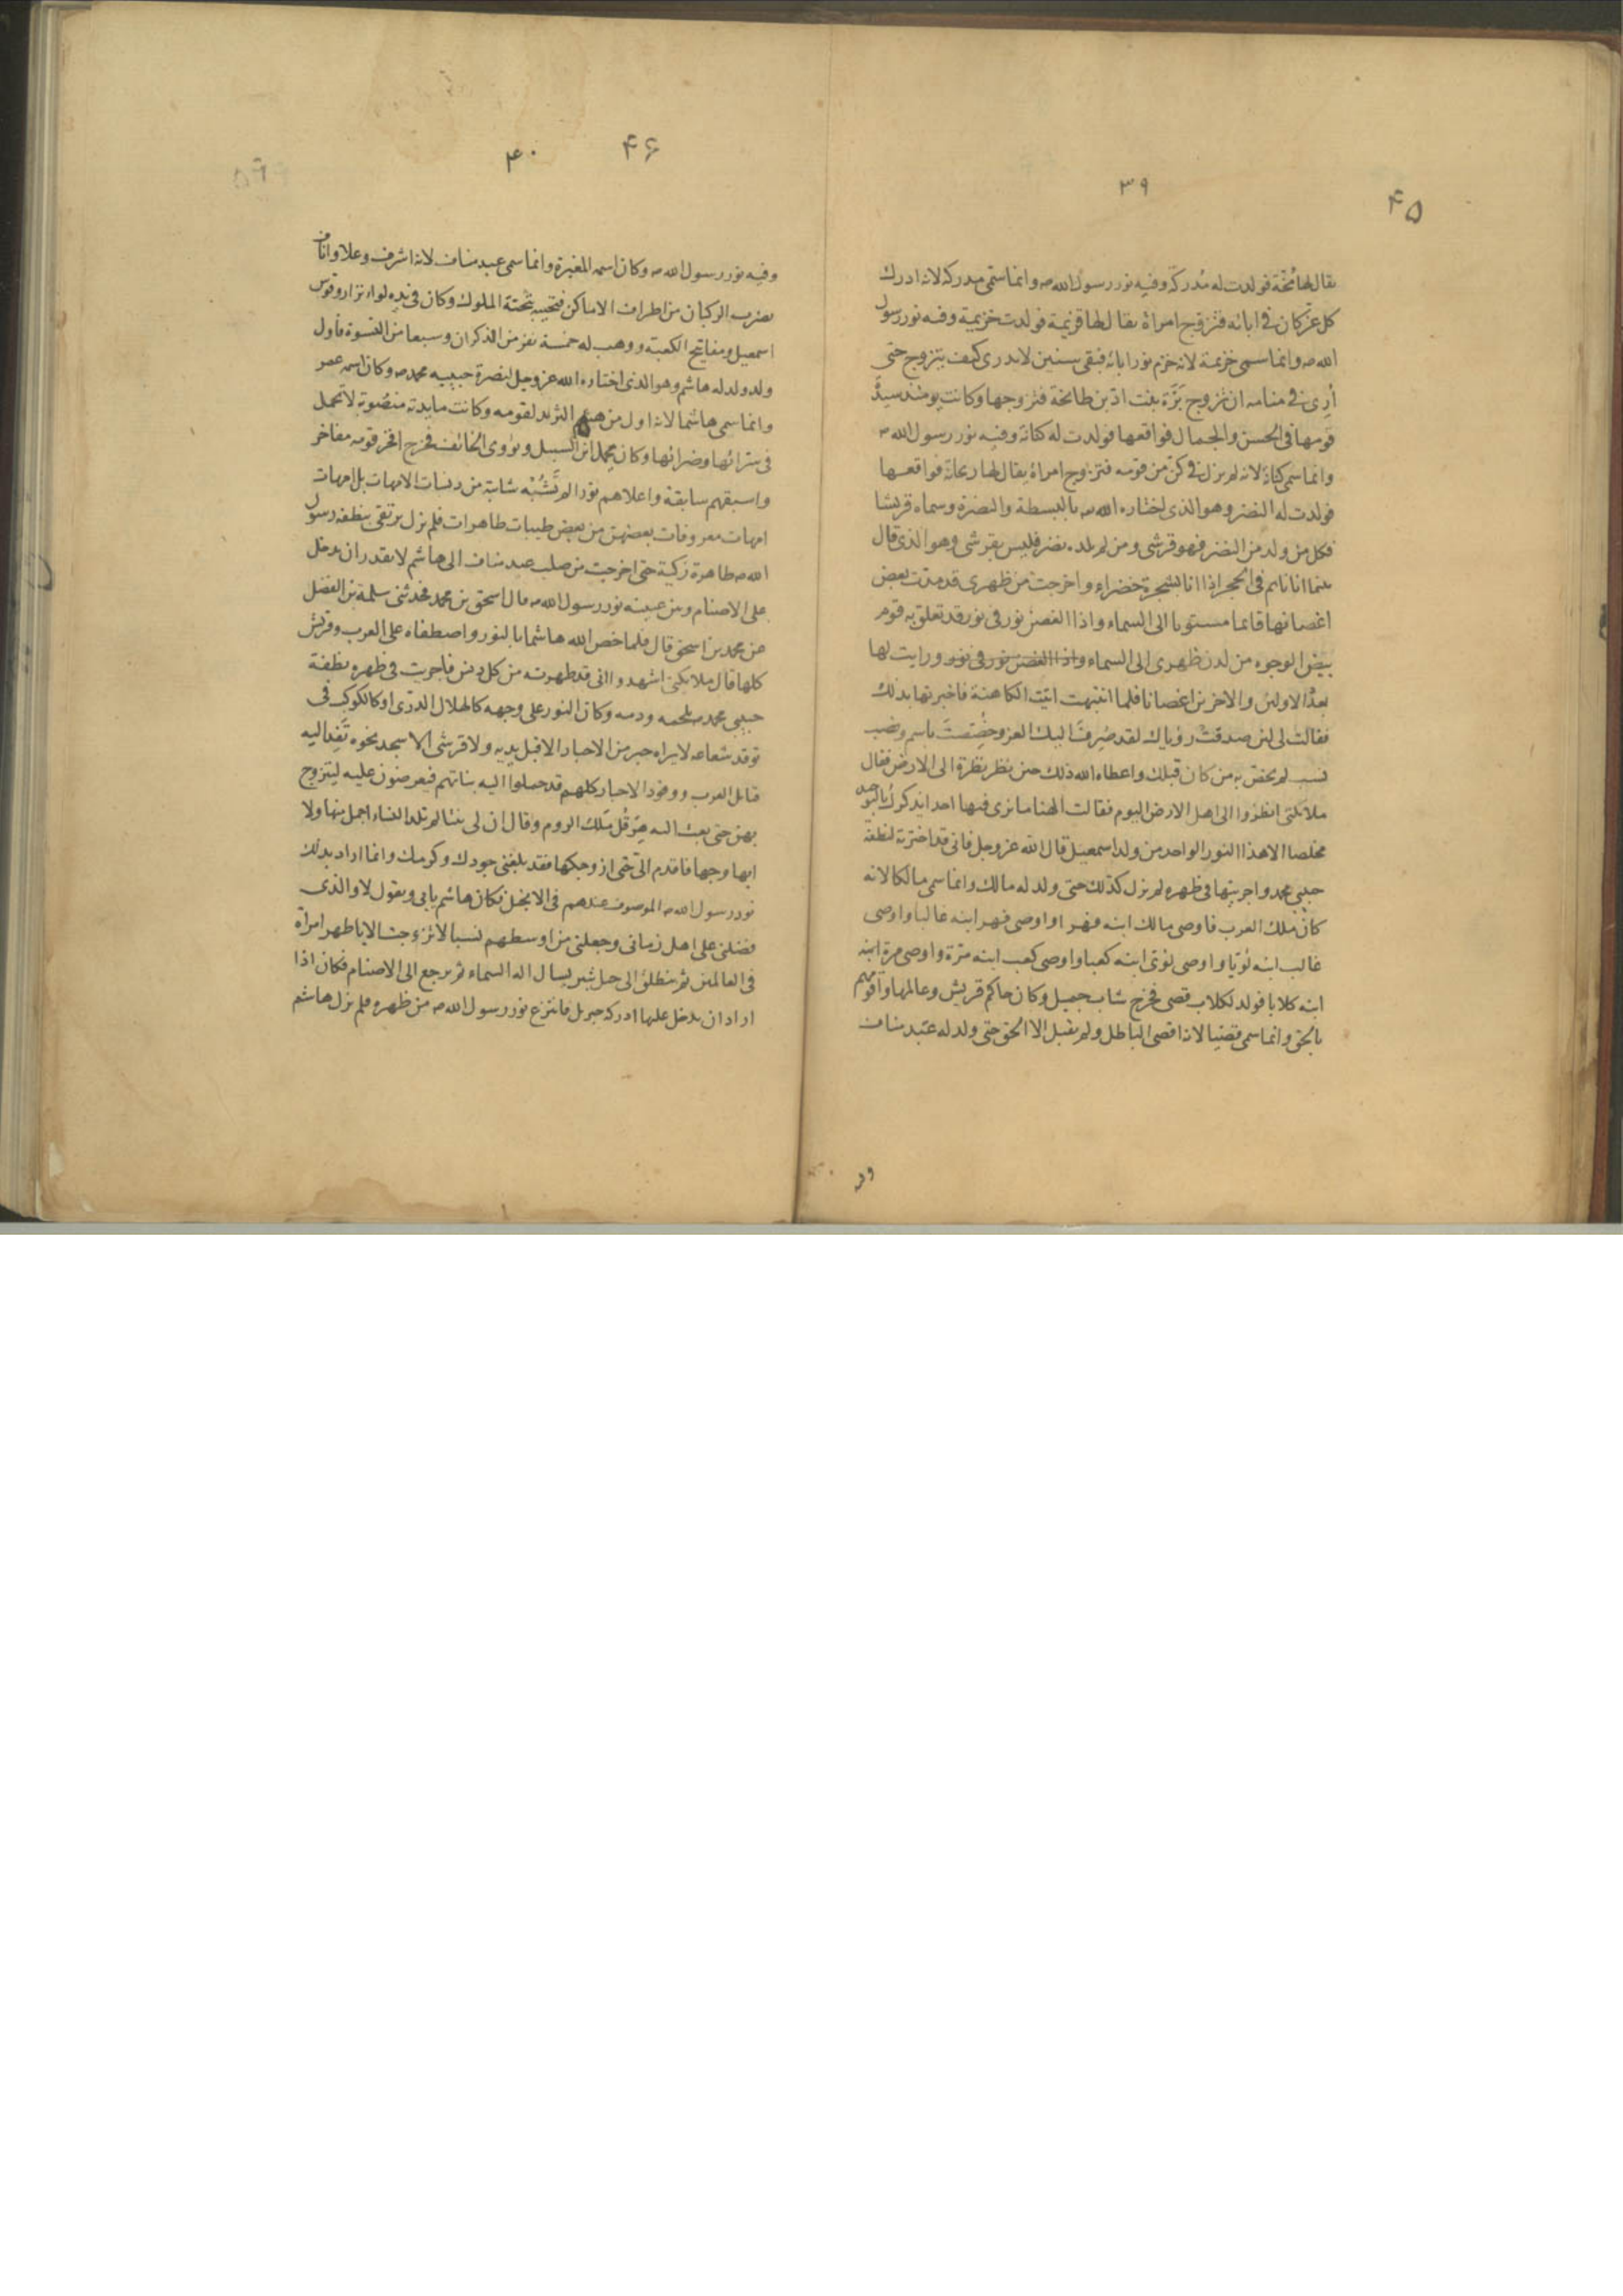 ۳۹
۴۵
يقال لها مخة فولدت له مُدركة وفيه نور رسول الله ص وانما سمّى مدركة لانه ادرك
كل عز كان في ابائه فتزوج امراة يقال لها قزيمة فولدت خزيمة وفيه نور رسول
الله ص وانما سمى خزيمة لانه خزم نور ابائه فبقى سنين لا يدرى كيف يتزوج حتى
أُرِى في منامه ان تزوج بَرَّة بنت ادّ بن طابخة فتزوجها وكانت يومئذ سيدة
قومها في الحسن والجمال فواقعها فولدت له كنانة وفيه نور رسول الله ص
وانما سمى كنانة لانه لم يزل في كنّ من قومه فتزوج امراة يقال لها ريحانة فواقعها
فولدت له النضر وهو الذى اختاره الله ص بالبسطة والنضرة وسماه قريشا
فكل من ولد من النضر فهو قرشى ومن لم يلد ه نضر فليس بقرشى وهو الذى قال
بينما انا نايم في الحجر اذا انا بشجرة خضراء واخرجت من ظهرى قد مدّت بعض
اغصانها قايما مستويا الى السماء واذا الغصن نور في نور قد تعلق به قوم
بيض الوجوه من لدن ظهرى الى السماء واذا الغصن نور في نور ورايت لها
بعدد الاولين والاخرين اغصانا فلما انتبهت اتيت الكاهنة فاخبرتها بذلك
فقالت لى لئن صدقت رؤياك لقد صُرِفَ اليك العز وخُصِصتَ باسم ونصب
نسب لم يخص به من كان قبلك واعطاه الله ذلك حين نظر نظرة الى الارض فقال
ملائكتى انظروا الى اهل الارض اليوم فقالت الهنا ما نرى فيها احدا يذكرك بالتوحيد
مخلصا الا هذا النور الواحد من ولد اسمعيل قال الله عز وجل فانى قد اخترته لنطفة
حبيبى محمد واجريتها في ظهره لم يزل كذلك حتى ولد له مالك وانما سمى مالكا لانه
كان ملك العرب فاوصى مالك ابنه فهرا واوصى فهر ابنه غالبا واوصى
غالب ابنه لؤيا واوصى لؤى ابنه كعبا واوصى كعب ابنه مرّة واوصى مرة ابنه
ابنه كلابا فولد لكلاب قصى فخرج شاب جميل وكان حاكم قريش وعالمها واقومهم
بالحق وانما سمى قصيّا لانه اقصى الباطل ولم يقبل الا الحق حتى ولد له عبد مناف
وفيه
۴۶
۴۰
وفيه نور رسول الله ص وكان اسمه المغيرة وانما سمى عبد مناف لانه اشرف وعلا واناف
يضرب الركبان من اطراف الاماكن فتحييه بتحيّة الملوك وكان في يده لواء نزار وقوس
اسمعيل ومفاتيح الكعبة ووهب له خمسة نفر من الذكران وسبعا من النسوة فاول
ولد ولد له هاشم وهو الذى اختاره الله عز وجل لنصرة حبيبه محمد ص وكان اسمه عمر
وانما سمى هاشما لانه اول من هشم الثريد لقومه وكانت مايدته منصوبة لا تحمل
في سرائها وضرائها وكان يحمل ابن السبيل ويؤوى الخائف فخرج افخر قومه مفاخر
واسبقهم سابقة واعلاهم نورا لم تَشُبْه شائبة من دنسات الامهات بل امهات
امهات معروفات بعضهن من بعض طيبات طاهرات فلم يزل يرتقى بنطفة رسول
الله ص طاهرة زكية حتى اخرجت من صلب عبد مناف الى هاشم لا يقدر ان يدخل
على الاصنام وبين عينيه نور رسول الله ص قال اسحق بن محمد فحدثنى سلمة بن الفضل
عن محمد بن اسحق قال فلما خص الله هاشما بالنور واصطفاه على العرب وقريش
كلها قال ملائكتى اشهدوا انى قد طهرته من كل دنس فاجريت في ظهره نطفة
حبيبى محمد ص بلحمه ودمه وكان النور على وجهه كالهلال الدرّى او كالكوكب في
توقد شعاعه لا يراه حبر من الاحبار الا قبل يديه ولا قرشى الا سجد نحوه تَفِد اليه
قبائل العرب ووفود الاحبار كلهم قد حملوا اليه بناتهم فيعرضون عليه ليتزوج
بهن حتى بعث اليه هِرَقْل ملك الروم وقال ان لى بنتا لم تلد النساء اجمل منها ولا
ابها وجها فاقدم الىّ حتى ازوجكها فقد بلغنى جودك وكرمك وانما اراد بذلك
نور رسول الله ص الموصوف عندهم في الانجيل فكان هاشم يابى ويقول لا والذى
فضلنى على اهل زمانى وجعلنى من اوسطهم نسبا لا تزوجت الا باطهر امراة
في العالمين ثم ينطلق الى جبل ثبير يسال اله السماء ثم يرجع الى الاصنام فكان اذا
اراد ان يدخل عليها ادركه جبريل فانتزع نور رسول الله ص من ظهره فلم يزل هاشم